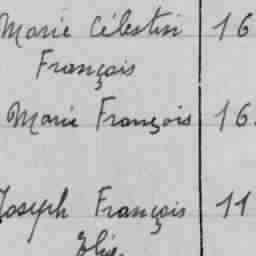 Marie Célestin 16
François
Marie François 16.
Joseph François 11